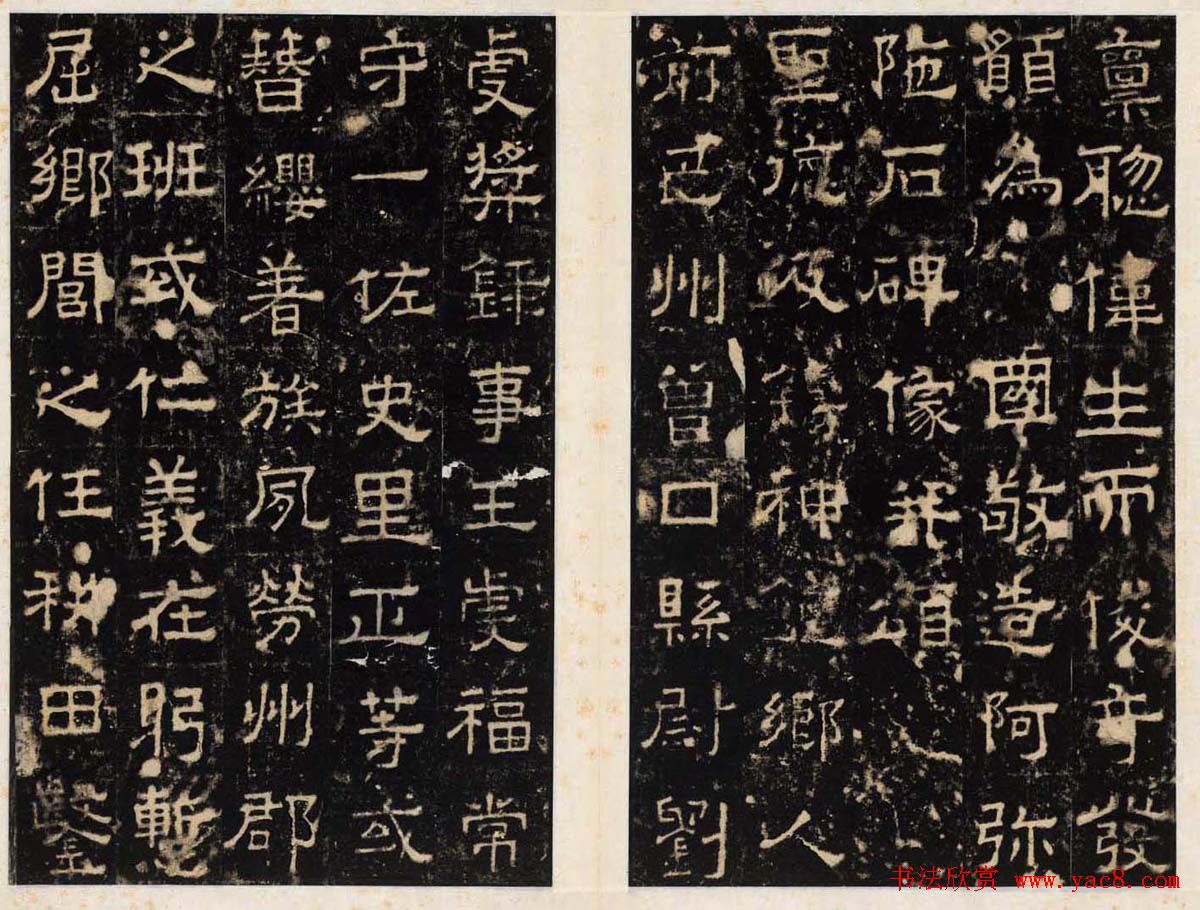 稟聦偉生而俊奇發
願為國敬造阿弥
陁石碑像并頌
聖及神鄉人
前巴州曾口縣尉劉
虔獎録事王虔福常
守一佐史里正等或
簪纓著族夙勞州郡
之班或仁義在躬慙
屈鄉閭之任耕田鑿
书法欣赏 www.yac8.com